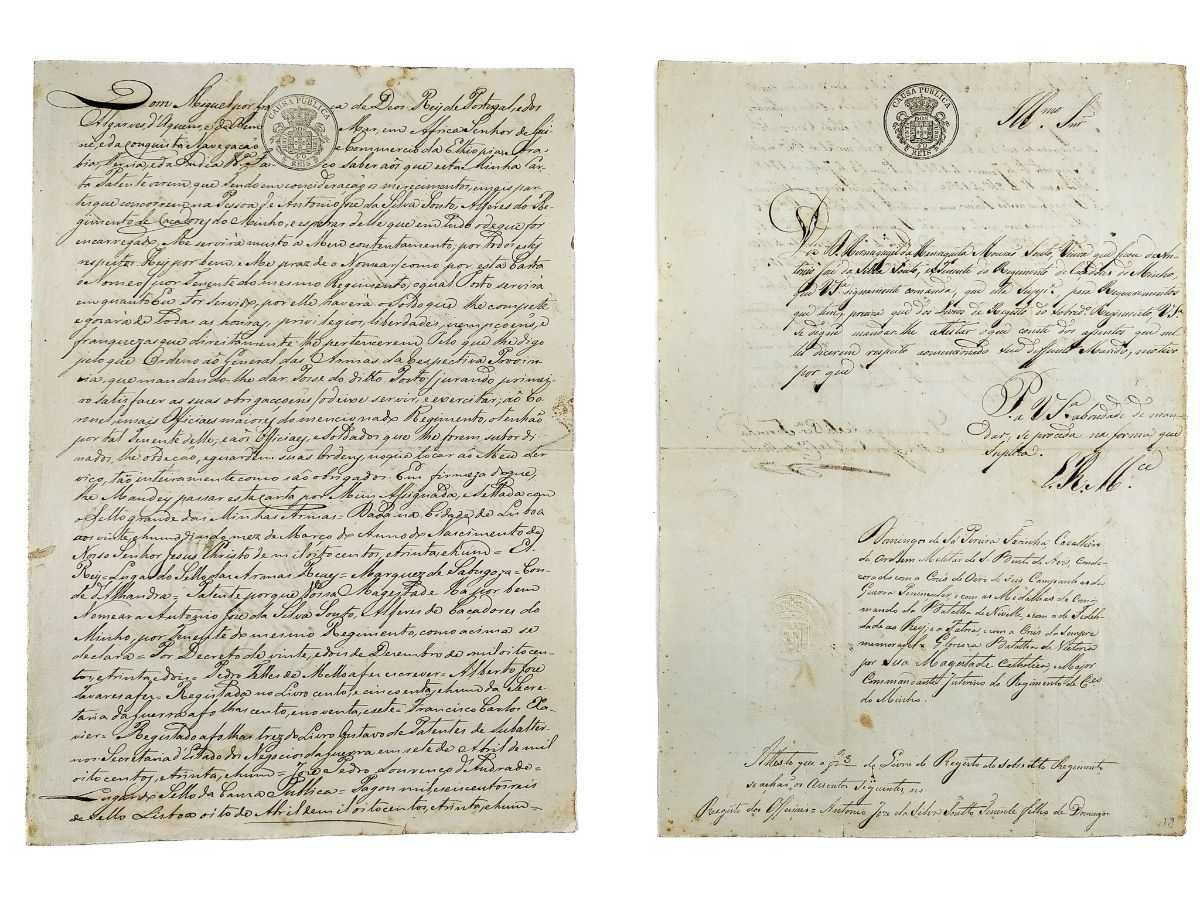 Dom Miguel por Gra ça de Deos Rey de Portugal, e dos
Algarves, d'Aquem, e d'alem Mar, em Africa Senhor de Gui
né, e da Conquista Navegação e Commercio da Ethiopia, Ara
bia, Persia, e da India &ta Faço saber aos que esta Minha Car
ta Patente virem, que tendo em consideração os merecimentos, e mais par
tes que concorrem na Pessoa de Antonio José da Silva Souto, Alferes do Re
gimento de Cacadores do Minho, e esperar delle que em tudo o de que for
encarregado, Me servirá muito a Meu contentamento, por todos estes
respeitos Hey por bem, e Me praz de o Nomear, como por esta Carta
o Nomeo, por Tenente do mesmo Regimento, o qual Posto servirá
em quanto Eu For Servido, e por elle haverá o Soldo que lhe compete
e gozará de todas as honras, privilegios, liberdades, izempçoens, e
franquezas que direitamente lhe pertencerem Pelo que lhe digo
pelo que Ordeno ao General das Armas da respectiva Provin
cia, que mandando-lhe dar Posse do ditto Posto (jurando primei
ro satisfazer as suas obrigaçoens) o deixe servir, e exercitar; ao Co
ronel, e mais Officiaes maiores do mencionado Regimento, o tenhão
por tal Tenente delle, e aos Officiaes, e Soldados que lhe forem subordi
nados, lhe obedeção, e guardem suas Ordens, no que tocar ao Meu Ser
viço, tão inteiramente como são obrigados Em firmeza do que,
lhe Mandey passar esta Carta por Mim Assignada, e Sellada com
o Sello grande das Minhas Armas= Dada na Cidade de Lisboa
aos vinte, e hum dias do mez de Março do Anno do Nascimento de
Nosso Senhor Jesus Christo de mil oito centos, e trinta, e hum= El
Rey= Lugar do Sello das Armas Reaes= Marquez de Sabugoza= Con
de d'Alhandra= Patente porque Vossa Magestade Ha por bem
Nomear a Antonio José da Silva Souto, Alferes de Caçadores do
Minho, por Tenente do mesmo Regimento, como acima se
declara= Por Decreto de vinte, e dois de Dezembro de mil oito cen
tos, e trinta= Pedro Telles de Mello a fez escrever= Alberto José
Tavares a fez= Registada no Livro cento, e cincoenta, e hum da Secre
taria da Guerra a folhas cento, e noventa, e sete= Francisco Carlos Xa
vier= Registado a folhas trez do Livro Outavo de Patentes de Subalter
nos Secretaria d'Estado dos Negocios da Guerra em sete de Abril de mil
oito centos, e trinta, e hum= José Pedro Lourenço d'Andrade=
Lugar do Sello da Cauza Publica= Pagou mil e seiscentos reis
de Sello Lisboa oito de Abril de mil oito centos, e trinta, e hum=
CAUSA PUBLICA
40
REIS
CAUSA PUBLICA
40
REIS
Illmo. Snr
Viuva que ficou de An
tonio José da Silva Souto, Tenente do Regimento de Caçadores do Minho,
que para Requerimentos
que tem, preciza que dos Livros de Registo do sobredo. Regimento V.S.
se digne mandar-lhe attestar o que conste dos assentos que nel
les dicerem respeito ao mencionado seu deffunto Marido, motivo
por que
P. a V.Sa. a bondade de man
dar, se proceda na forma que
supplica.
E. R. Mce
Domingos de Sá Pereira Cavalleiro
da Ordem Militar de S. Bento de Aviz, conde
corado com a Cruz de Ouro de Seis Campanhas da
Guerra Peninsular, e com as Medalhas de Com
mando da Batalha de Nivelle, e com a de Fideli
dade ao Rey, e a Patria, e com a Cruz da Sempre
memoravel, e Glorioza Batalha de Victoria
por Sua Magestade Catholica, Major
Commandante Interino do Regimento de Ces.
do Minho.
Attesto que a do Livro de Registo do sobredito Regimento
se achão os Assentos Seguintes
Registo dos Officiaes= Antonio José da Silva Soutto Tenente filho de Domingos